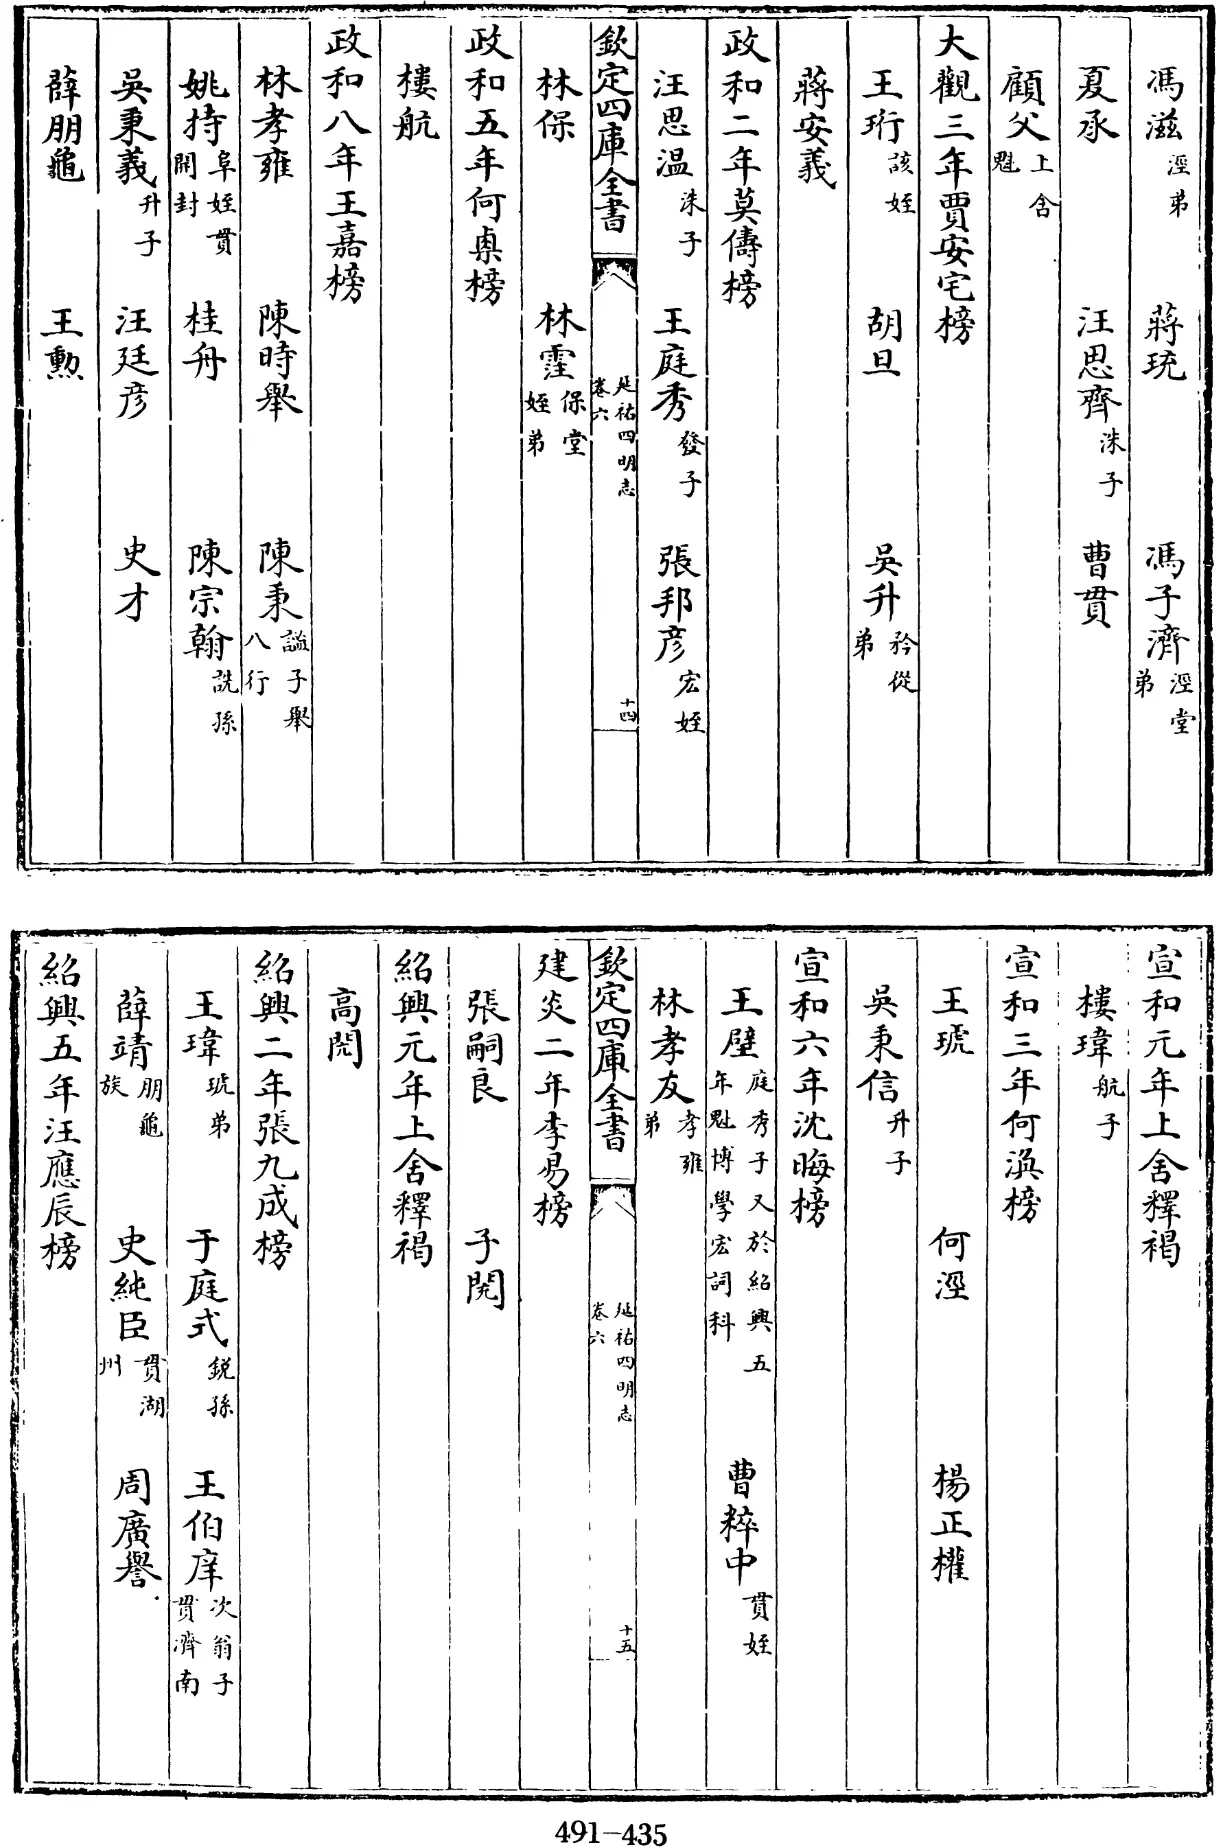 馮滋涇弟　蔣琉　馮子濟涇堂弟
夏承　汪思齊洙子　曹貫
顧父上舍魁
大觀三年賈安宅榜
王珩該姪　胡旦　吳升矜從弟
蔣安義
政和二年莫儔榜
汪思溫洙子　王庭秀發子　張邦彥宏姪
欽定四庫全書　延祐四明志卷六　十四
林保　林霔保堂姪弟
政和五年何㮚榜
樓航
政和八年王嘉榜
林孝雍　陳時舉　陳秉謐子舉八行
姚持阜姪貫開封　桂舟　陳宗翰詵孫
吳秉義升子　汪廷彥　史才
薛朋龜　王勲
宣和元年上舍釋褐
樓璹航子
宣和三年何渙榜
王琥　何涇　楊正權
吳秉信升子
宣和六年沈晦榜
王璧庭秀子又於紹興五年魁博學宏詞科　曹粹中貫姪
林孝友孝雍弟
欽定四庫全書　延祐四明志卷六　十五
建炎二年李易榜
張嗣良　子開
紹興元年上舍釋褐
高閌
紹興二年張九成榜
王瑋琥弟　于庭式銳孫　王伯庠次翁子貫濟南
薛靖朋龜族　史純臣貫湖州　周廣譽
紹興五年汪應辰榜
491-435